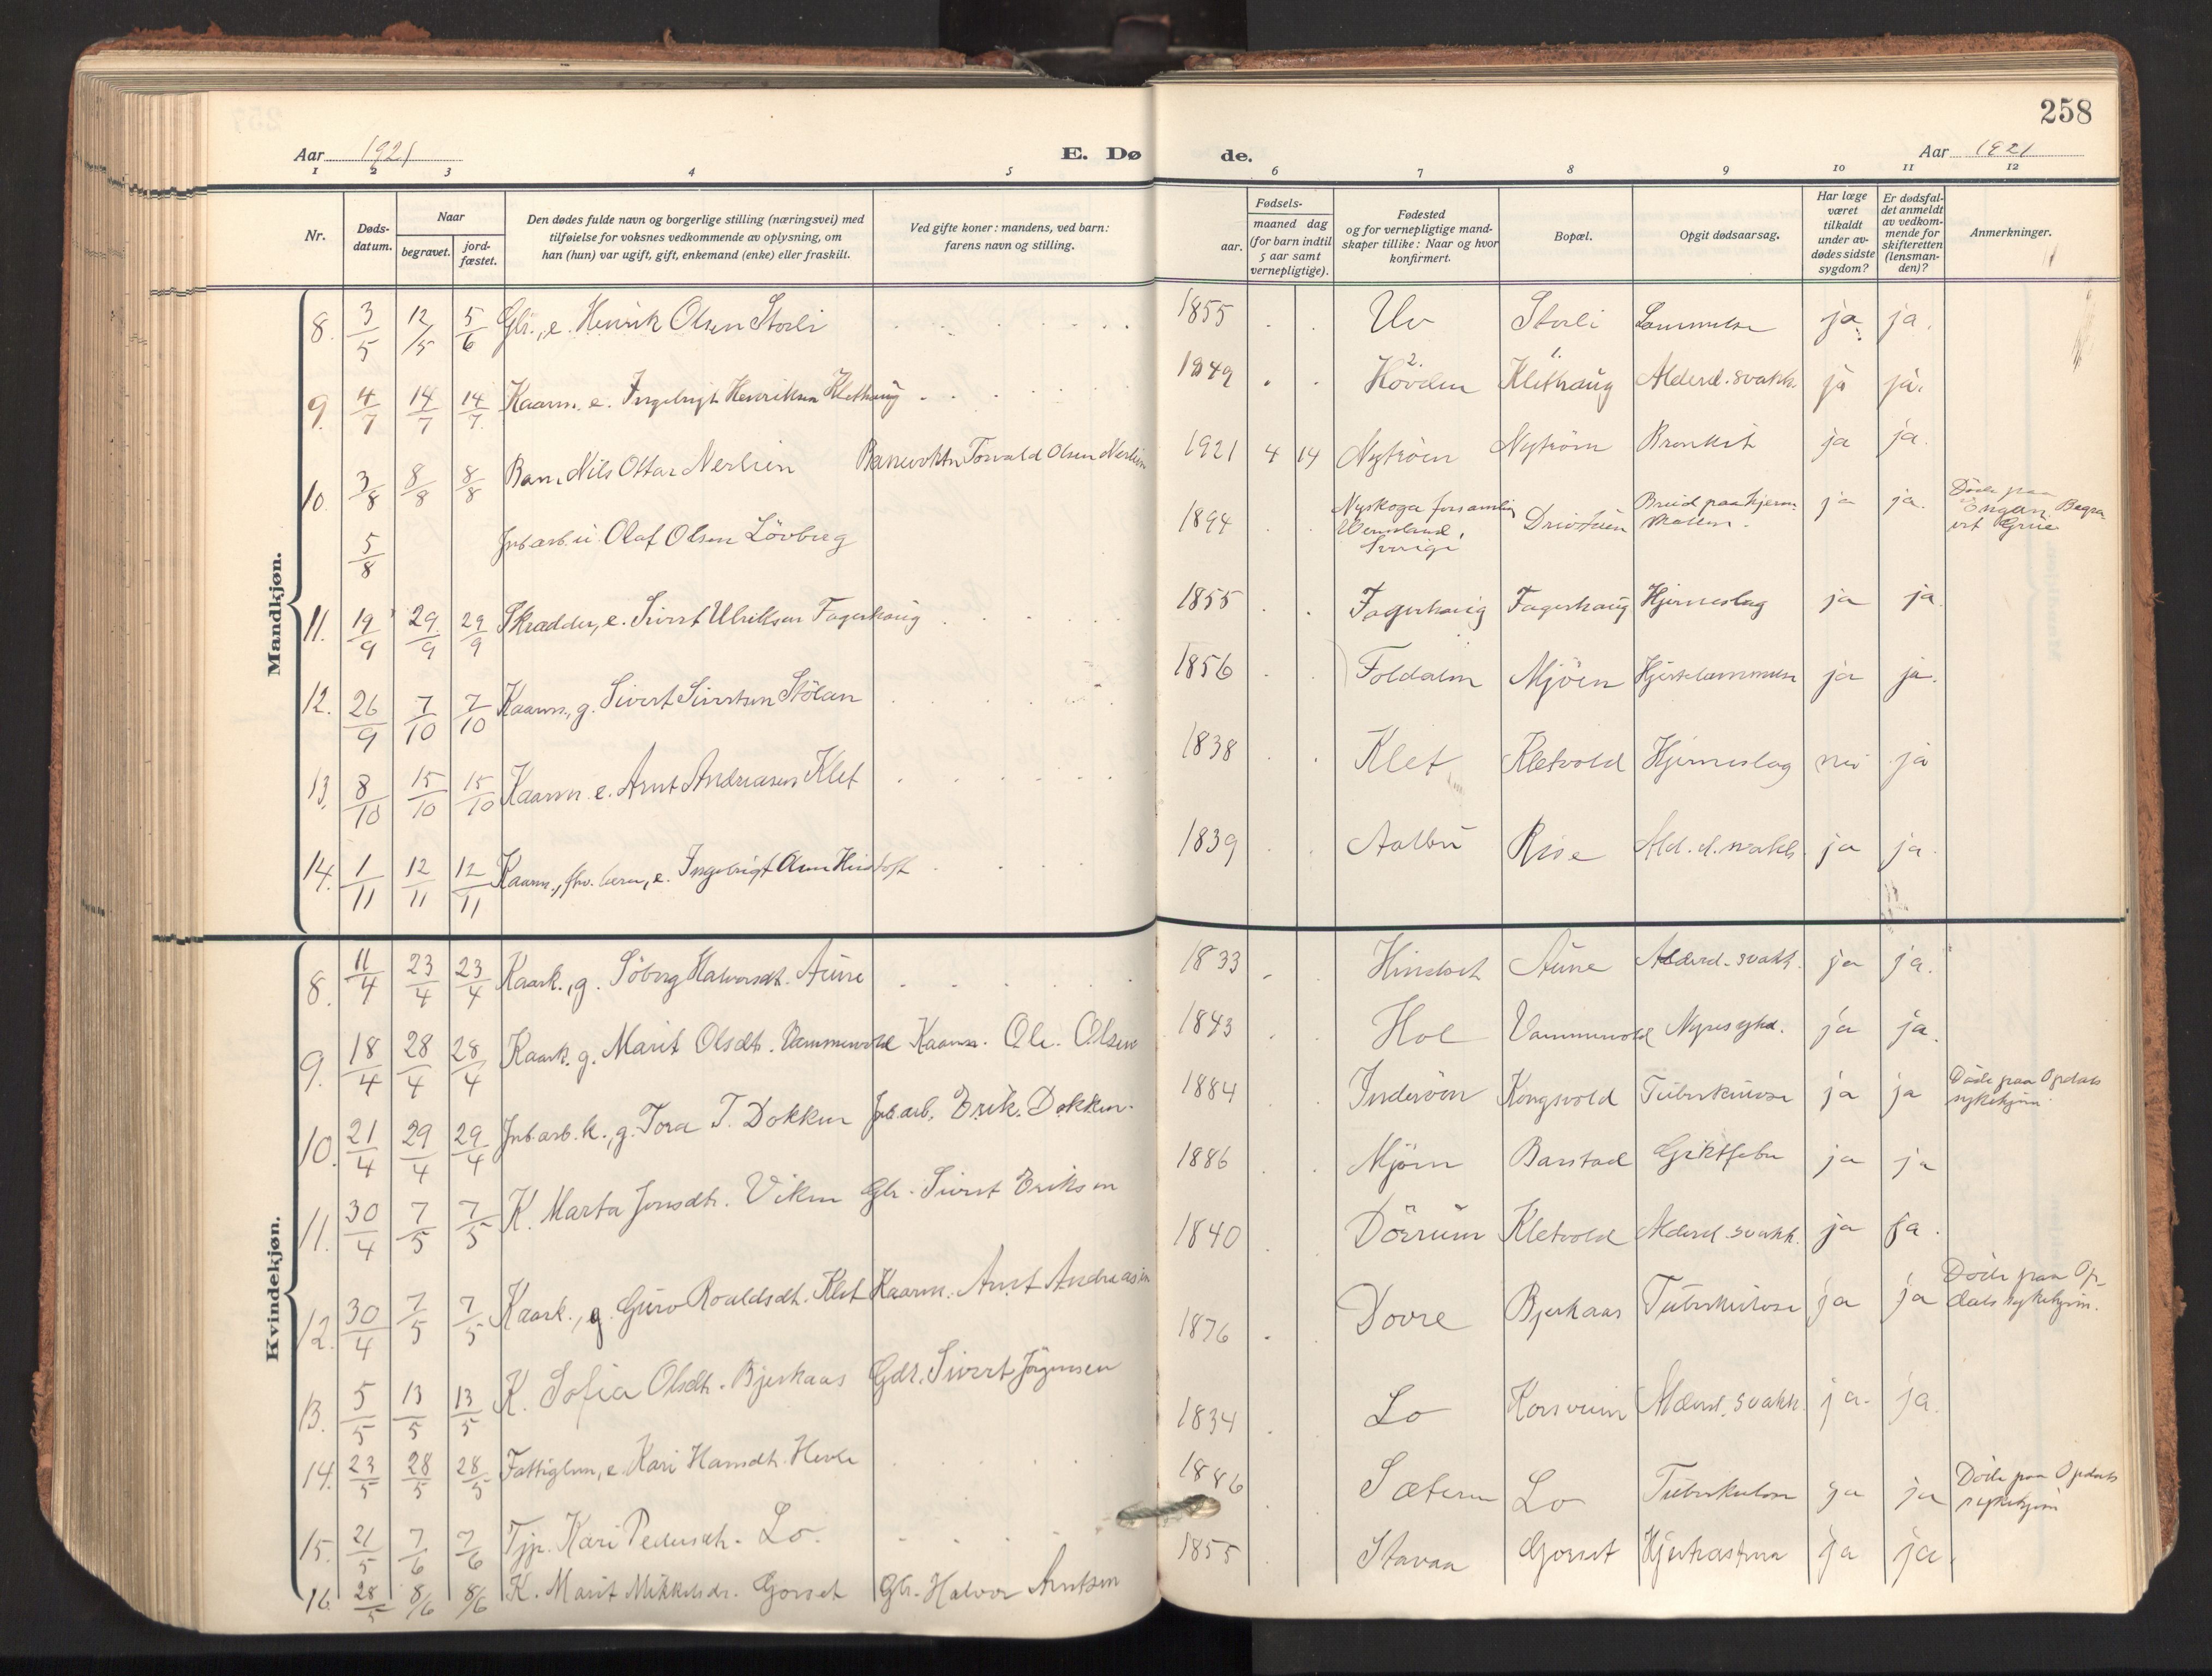 258
Aar 1921
E. Dø
de.
Aar 1921
1 2 3 4 5 6 7 8 9 10 11 12
Nr.
Døds-
datum.
Naar
begravet.
jord-
fæstet.
Den dødes fulde navn og borgerlige stilling (næringsvei) med
tilføielse for voksnes vedkommende av oplysning, om
han (hun) var ugift, gift, enkemand (enke) eller fraskilt.
Ved gifte koner: mandens, ved barn:
farens navn og stilling.
Fødsels-
aar.
maaned dag
(for barn indtil
5 aar samt
vernepligtige).
Fødested
og for vernepligtige mand-
skaper tillike: Naar og hvor
konfirmert.
Bopæl.
Opgit dødsaarsag.
Har læge
været
tilkaldt
under av-
dødes sidste
sygdom?
Er dødsfal-
det anmeldt
av vedkom-
mende for
skifteretten
(lensman-
den)?
Anmerkninger.
Mandkjøn.
8. 3/5 12/5 5/6 Gbr., e. Henrik Olsen Storli 1855 Uv Storli Lammelse ja ja.
9. 4/7 14/7 14/7 Kaarm. e. Ingebrigt Henriksen Klethaug 1849 2. Hovden 1. Klethaug Alderd. svakh. ja ja.
10. 3/8 8/8 8/8 Barn Nils Ottar Nerlien Banevokter Torvald Olsen Nerlien 1921 4 14 Nystrøen Nystrøen Bronkit ja ja.
5/8 Jnb.arb. u. Olaf Olsen Lövberg 1894 Nyskoga forsamling
Wermland,
Sverige Drivstuen Brud paa hjerne-
skallen. ja ja. Døde paa
Begra-
vet Grue
11. 19/9 29/9 29/9 Skrædder, e. Sivert Ulriksen Fagerhaug 1855 Fagerhaug Fagerhaug Hjerneslag ja ja.
12. 26/9 7/10 7/10 Kaarm., g. Sivert Sivertsen Stölan 1856 Foldalen Mjöen Hjertelammelse ja ja.
13. 8/10 15/10 15/10 Kaarm. e. Arnt Andreasen Klet 1838 Klet Kletvold Hjerneslag nei ja
14. 1/11 12/11 12/11 Kaarm., fhv. lærer, e. Ingebrigt Olsen Hindset 1839 Aalbu Rise Ald. d. svakh. ja ja.
Kvindekjøn.
8. 11/4 23/4 23/4 Kaark., g. Söberg Halvorsdt. Aune 1833 Hindset Aune Alderd. svakh. ja ja.
9. 18/4 28/4 28/4 Kaark. g. Marit Olsdt. Vammervold Kaarm. Ole Olsen 1843 Hol Vammervold Nyresykd. ja ja.
10. 21/4 29/4 29/4 Jnb.arb. k., g. Tora T. Dokken Jnb.arb. Erik Dokken. 1884 Inderöen Kongsvold Tuberkulose ja ja Döde paa Opdals
sykehjem
11. 30/4 7/5 7/5 K. Marta Jonsdt. Viken Gbr. Sivert Eriksen 1886 Mjöen Barstad Giktfeber ja ja
12. 30/4 7/5 7/5 Kaark., g. Guro Roaldsdt. Klet Kaarm. Arnt Andreasen 1840 Dörrum Kletvold Alderd. svakh. ja ja.
13. 5/5 13/5 13/5 K. Sofia Olsdt. Bjerkaas Gdr. Sivert Jörgensen 1876 Dovre Bjerkaas Tuberkulose ja ja Döde paa Op-
dals sykehjem.
14. 23/5 28/5 28/5 Fattiglem, e. Kari Hansdt. Hevle 1834 Lo Horsveien Alderd. svakh. ja. ja.
15. 21/5 7/6 7/6 Tjp. Kari Pedersdt. Lo. 1886 Sæteren Lo Tuberkulose ja ja Döde paa Opdals
sykehjem
16. 28/5 8/6 8/6 K. Marit Mikkelsdt. Gorset Gbr. Halvor Arntsen 1855 Stavaa Gorset ja ja.